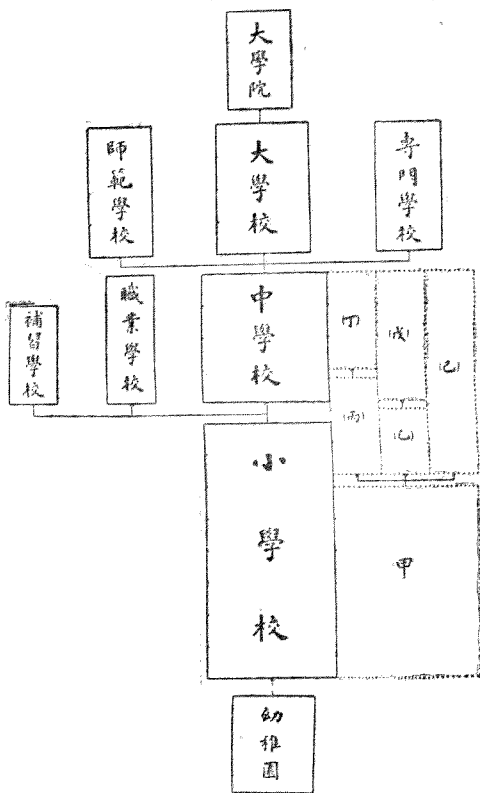 大學院
師範學校
大學校
專門學校
補習學校
職業學校
中學校
(丁)
(戊)
(己)
(丙)
(乙)
小學校
甲
幼稚園